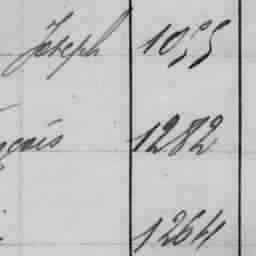 Joseph 1055
çois 1282
1264